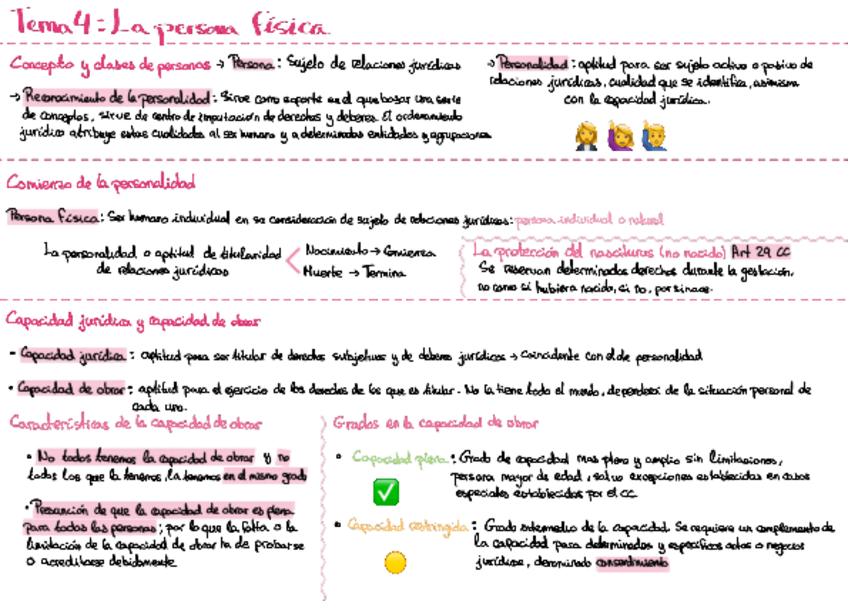 Tema 4: La persona física.
Concepto y clases de personas → Persona: Sujeto de relaciones jurídicas
→ Personalidad: aptitud para ser sujeto activo o pasivo de
relaciones jurídicas, cualidad que se identifica, asimismo
con la capacidad jurídica.
→ Reconocimiento de la personalidad: Sirve como soporte en el que basar una serie
de conceptos, sirve de centro de imputación de derechos y deberes. El ordenamiento
jurídico atribuye estas cualidades al ser humano y a determinadas entidades y agrupaciones
Comienzo de la personalidad
Persona física: Ser humano individual en su consideración de sujeto de relaciones jurídicas: persona individual o natural
La personalidad o aptitud de titularidad
de relaciones jurídicas
Nacimiento → Comienza
Muerte → Termina
La protección del nasciturus (no nacido) Art 29 CC
Se reservan determinados derechos durante la gestación,
no como si hubiera nacido, si no, por si nace.
Capacidad jurídica y capacidad de obrar
- Capacidad jurídica: aptitud para ser titular de derechos subjetivos y de deberes jurídicos → Coincidente con el de personalidad
• Capacidad de obrar: aptitud para el ejercicio de los derechos de los que es titular. No la tiene todo el mundo, dependerá de la situación personal de
cada uno.
Características de la capacidad de obrar
• No todos tenemos la capacidad de obrar y no
todos los que la tenemos, la tenemos en el mismo grado
• Presunción de que la capacidad de obrar es plena
para todas las personas; por lo que la falta o la
limitación de la capacidad de obrar ha de probarse
o acreditarse debidamente
Grados en la capacidad de obrar
• Capacidad plena: Grado de capacidad mas pleno y amplio sin limitaciones,
persona mayor de edad, salvo excepciones establecidas en casos
especiales establecidos por el CC.
• Capacidad restringida: Grado intermedio de la capacidad. Se requiere un complemento de
la capacidad para determinados y específicos actos o negocios
jurídicos, denominado consentimiento